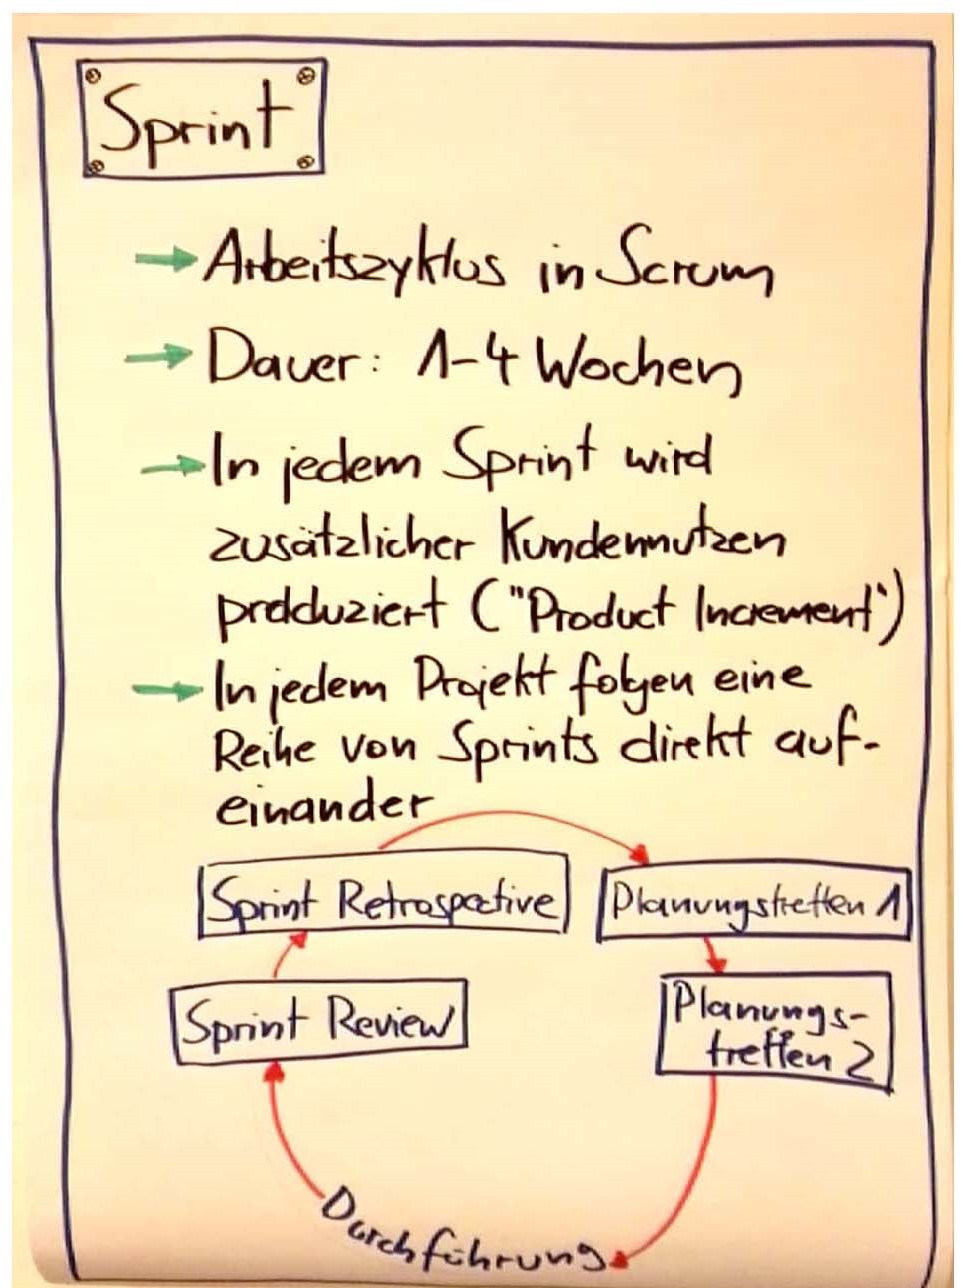 Sprint
→ Arbeitszyklus in Scrum
→ Dauer: 1-4 Wochen
→ In jedem Sprint wird
zusätzlicher Kundennutzen
prodduziert ("Product Increment")
→ In jedem Projekt folgen eine
Reihe von Sprints direkt auf-
einander
Sprint Retrospective
Planungstreffen 1
Sprint Review
Planungs-
treffen 2
Durchführung